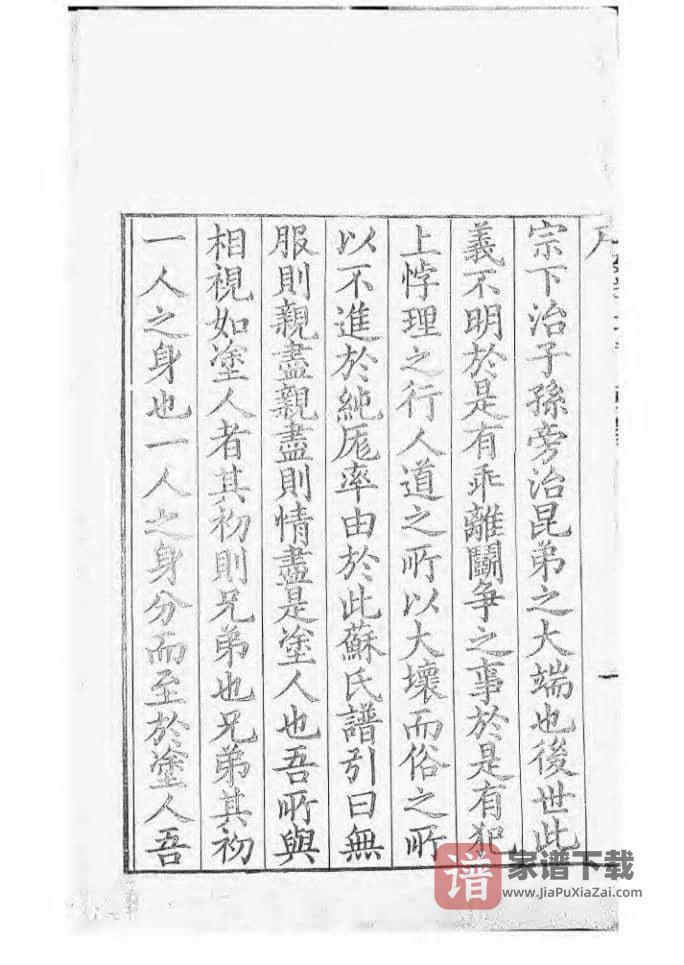 宗下治子孫旁治昆弟之大端也後世此
義不明於是有乖離鬭争之事於是有犯
上悖理之行人道之所以大壞而俗之所
以不進於純厖率由於此蘇氏譜引曰無
服則親盡親盡則情盡是塗人也吾所與
相視如塗人者其初則兄弟也兄弟其初
一人之身也一人之身分而至於塗人吾
谱 家谱下载
www.JiaPuXiaZai.com